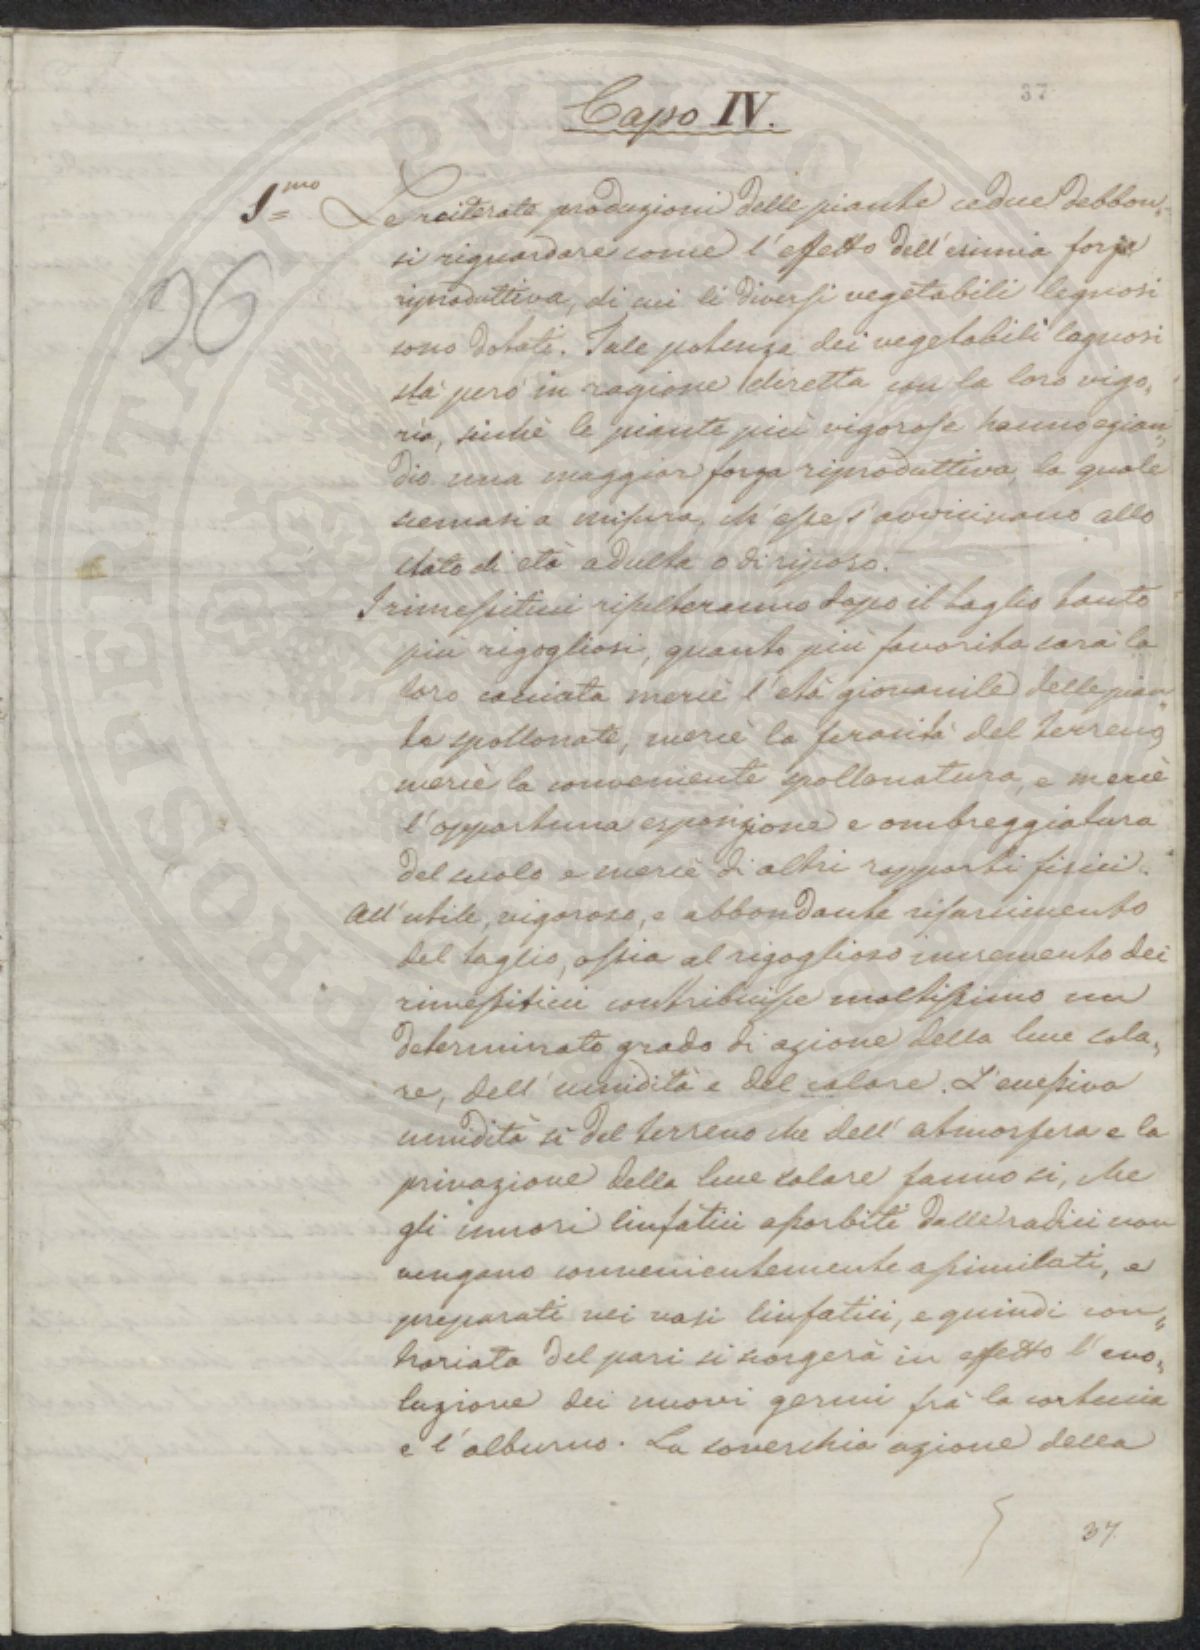 37
Capo IV.
1mo= Le reiterate produzioni delle piante cedue debbon=
si riguardare come l'effetto dell'esimia forza
riproduttiva, di cui li diversi vegetabili legnosi
sono dotati. Tale potenza dei vegetabili legnosi
stà però in ragione diretta con la loro vigo=
ria, sicchè le piante più vigorose hanno ezian=
dio una maggior forza riproduttiva, la quale
scemasi a misura, ch'esse s'avvicinano allo
stato di età adulta o di riposo.
26
I rimessiticci risulteranno dopo il taglio tanto
più rigogliosi, quanto più favorita sarà la
loro cacciata mercè l'età giovanile delle pian=
te spollonate, mercè la feracità del terreno,
mercè la conveniente spollonatura, e mercè
l'opportuna esposizione e ombreggiatura
del suolo e mercè di altri rapporti fisici.
All'utile, vigoroso, e abbondante risarcimento
del taglio, ossia al rigoglioso incremento dei
rimessiticci contribuisce moltissimo un
determinato grado di azione della luce sola=
re, dell'umidità e del calore. L'eccessiva
umidità sì del terreno che dell'atmosfera e la
privazione della luce solare fanno sì, che
gli umori linfatici assorbiti dalle radici non
vengano convenientemente assimilati, e
preparati nei vasi linfatici, e quindi con=
trariata del pari si scorgerà in effetto l'evo=
luzione dei nuovi germi frà la corteccia
e l'alburno. La soverchia azione della
37.
PROSPERITATI PVBLICAE